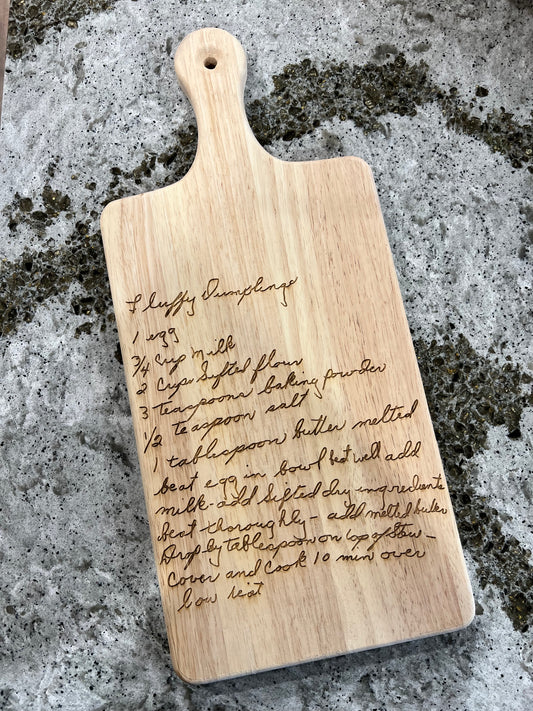 Fluffy Dumplings
1 egg
3/4 Cup Milk
2 Cups Sifted flour
3 teaspoons baking powder
1/2 teaspoon salt
1 tablespoon butter melted
beat egg in bowl beat well add
milk - add sifted dry ingredients
beat thoroughly - add melted butter
Drop by tablespoon on top of stew -
Cover and Cook 10 min over
low heat